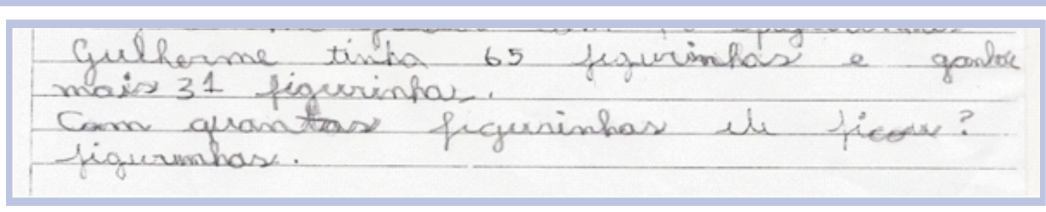 Guilherme tinha 65 figurinhas e ganhou
mais 31 figurinhas.
Com quantas figurinhas ele ficou?
figurinhas.